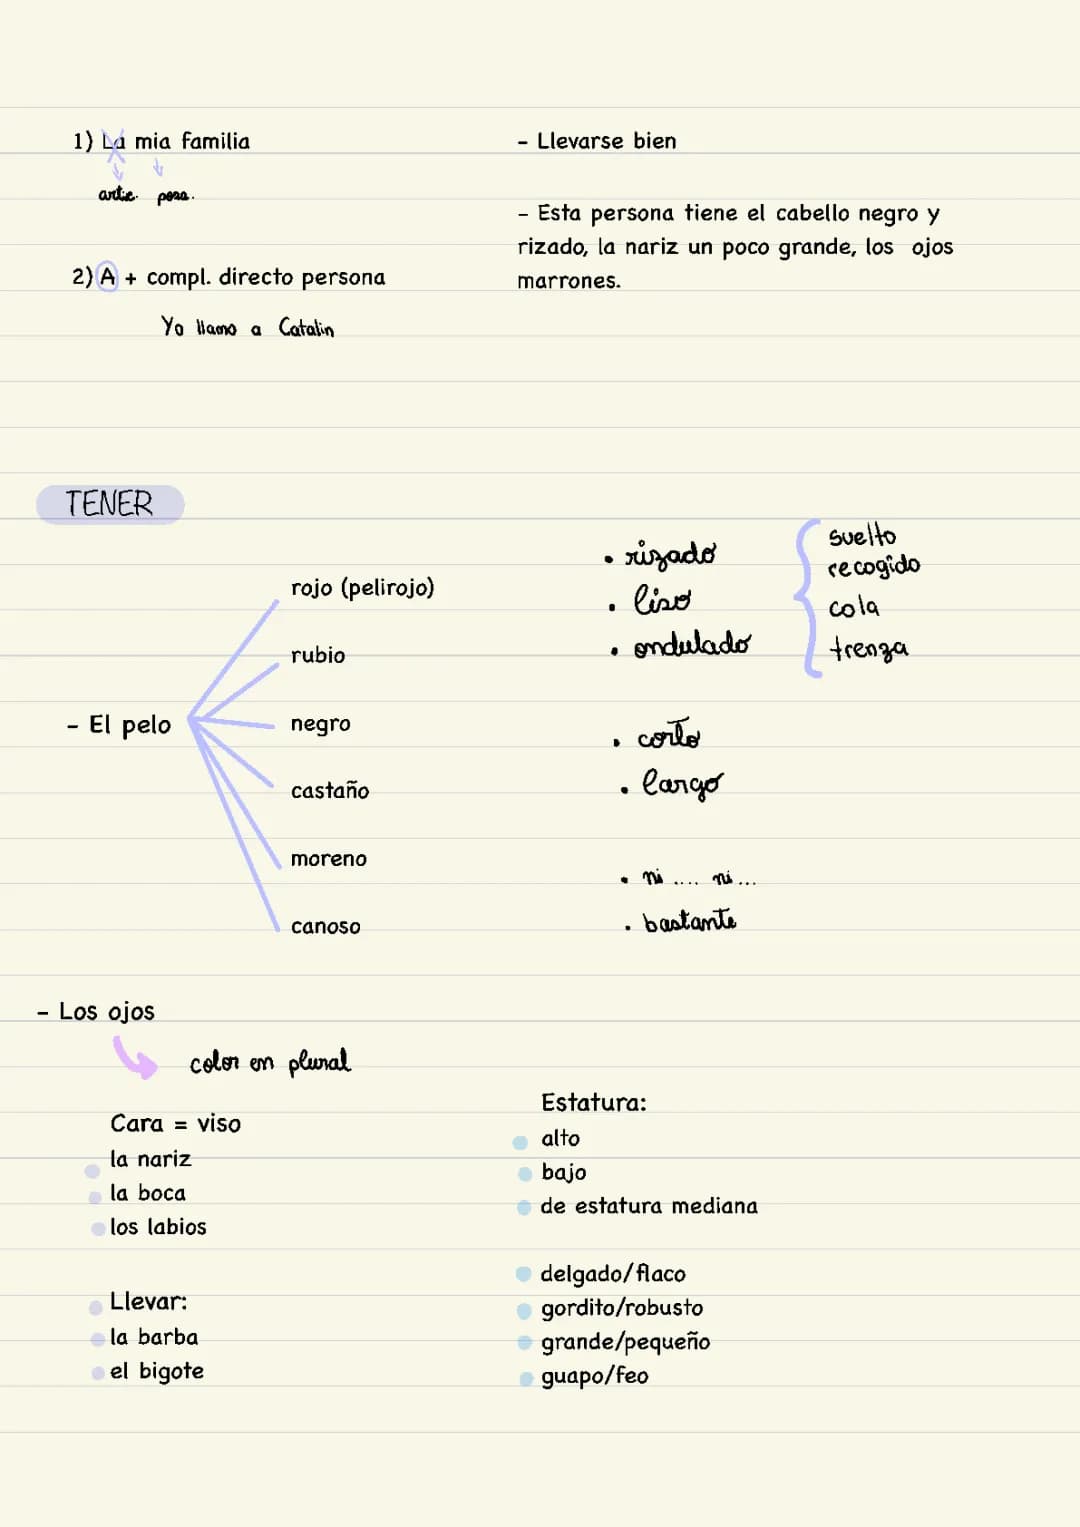 1) La mia familia
artic. poss.
2) A + compl. directo persona
Yo llamo a Catalin
- Llevarse bien
- Esta persona tiene el cabello negro y
rizado, la nariz un poco grande, los ojos
marrones.
TENER
- El pelo
rojo (pelirojo)
rubio
negro
castaño
moreno
canoso
• rizado
• liso
• ondulado
suelto
recogido
cola
trenza
• corto
• largo
• ni .... ni ...
• bastante
- Los ojos
color en plural
Cara = viso
la nariz
la boca
los labios
Llevar:
la barba
el bigote
Estatura:
alto
bajo
de estatura mediana
delgado/flaco
gordito/robusto
grande/pequeño
guapo/feo